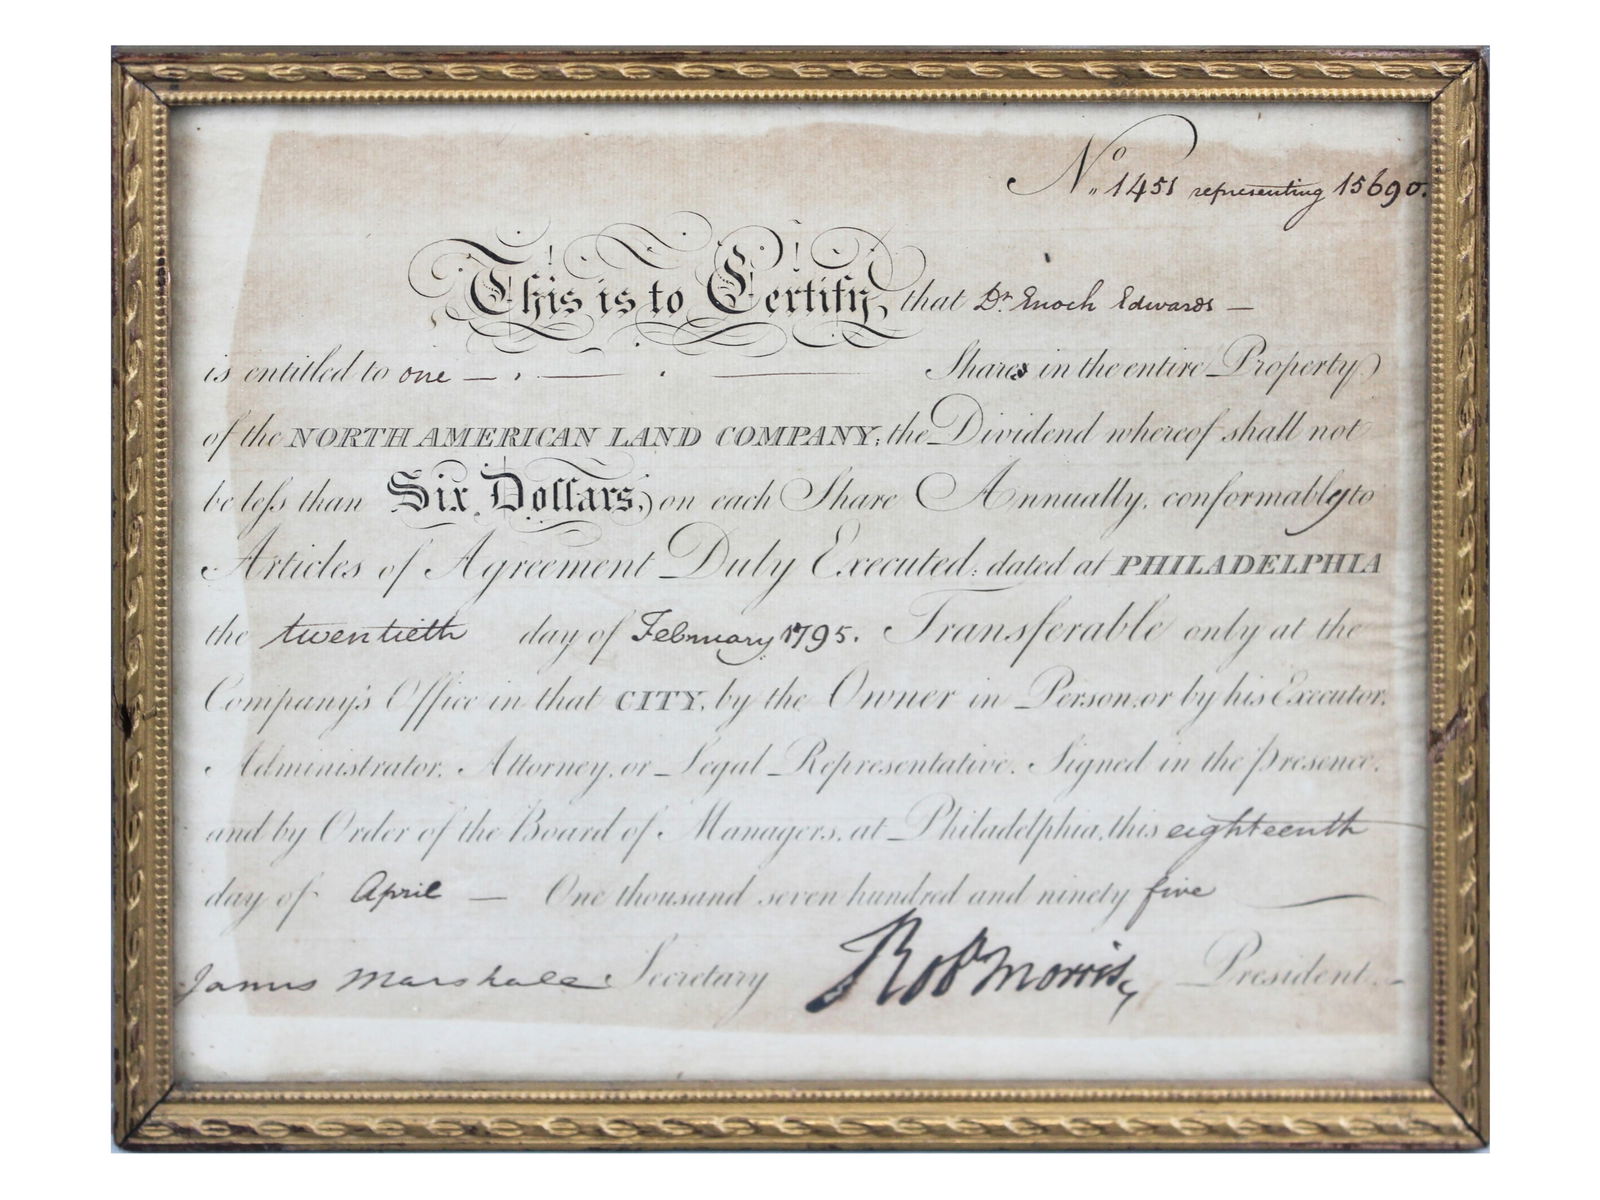 No. 1451 representing 15690.
This is to Certify, that Dr. Enoch Edwards —
is entitled to one — . — . — Share in the entire Property
of the NORTH AMERICAN LAND COMPANY; the Dividend whereof shall not
be leſs than Six Dollars, on each Share Annually, conformably to
Articles of Agreement Duly Executed; dated at PHILADELPHIA
the twentieth day of February 1795. Transferable only at the
Company's Office in that CITY, by the Owner in Person, or by his Executor,
Administrator, Attorney, or Legal Representative. Signed in the presence,
and by Order of the Board of Managers, at Philadelphia, this eighteenth
day of April — One thousand seven hundred and ninety five —
James Marshall Secretary Robt Morris President.